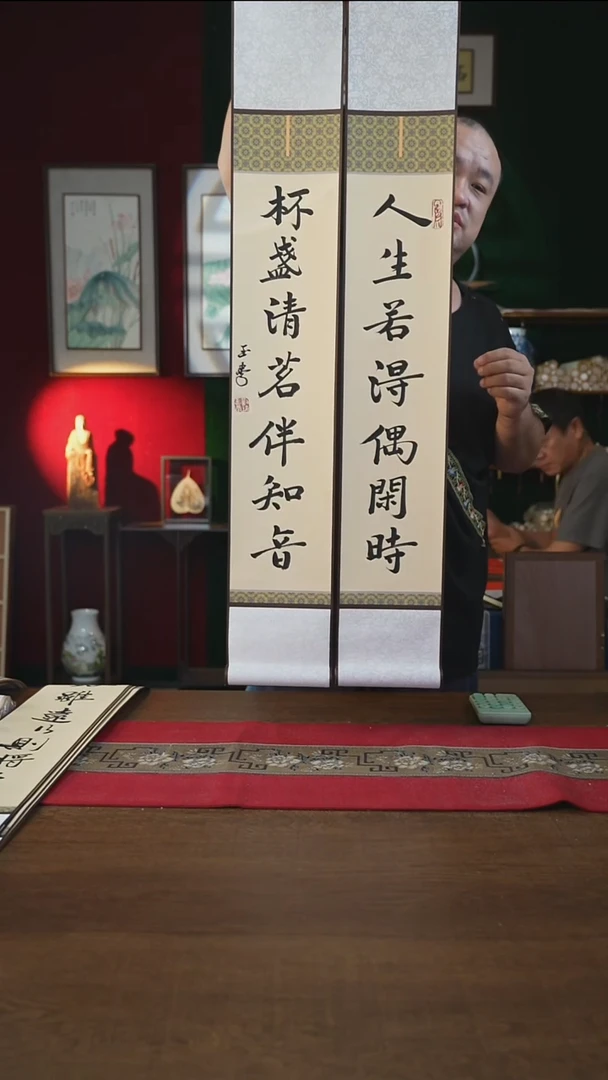 人生若得偶閑時
杯盞清茗伴知音